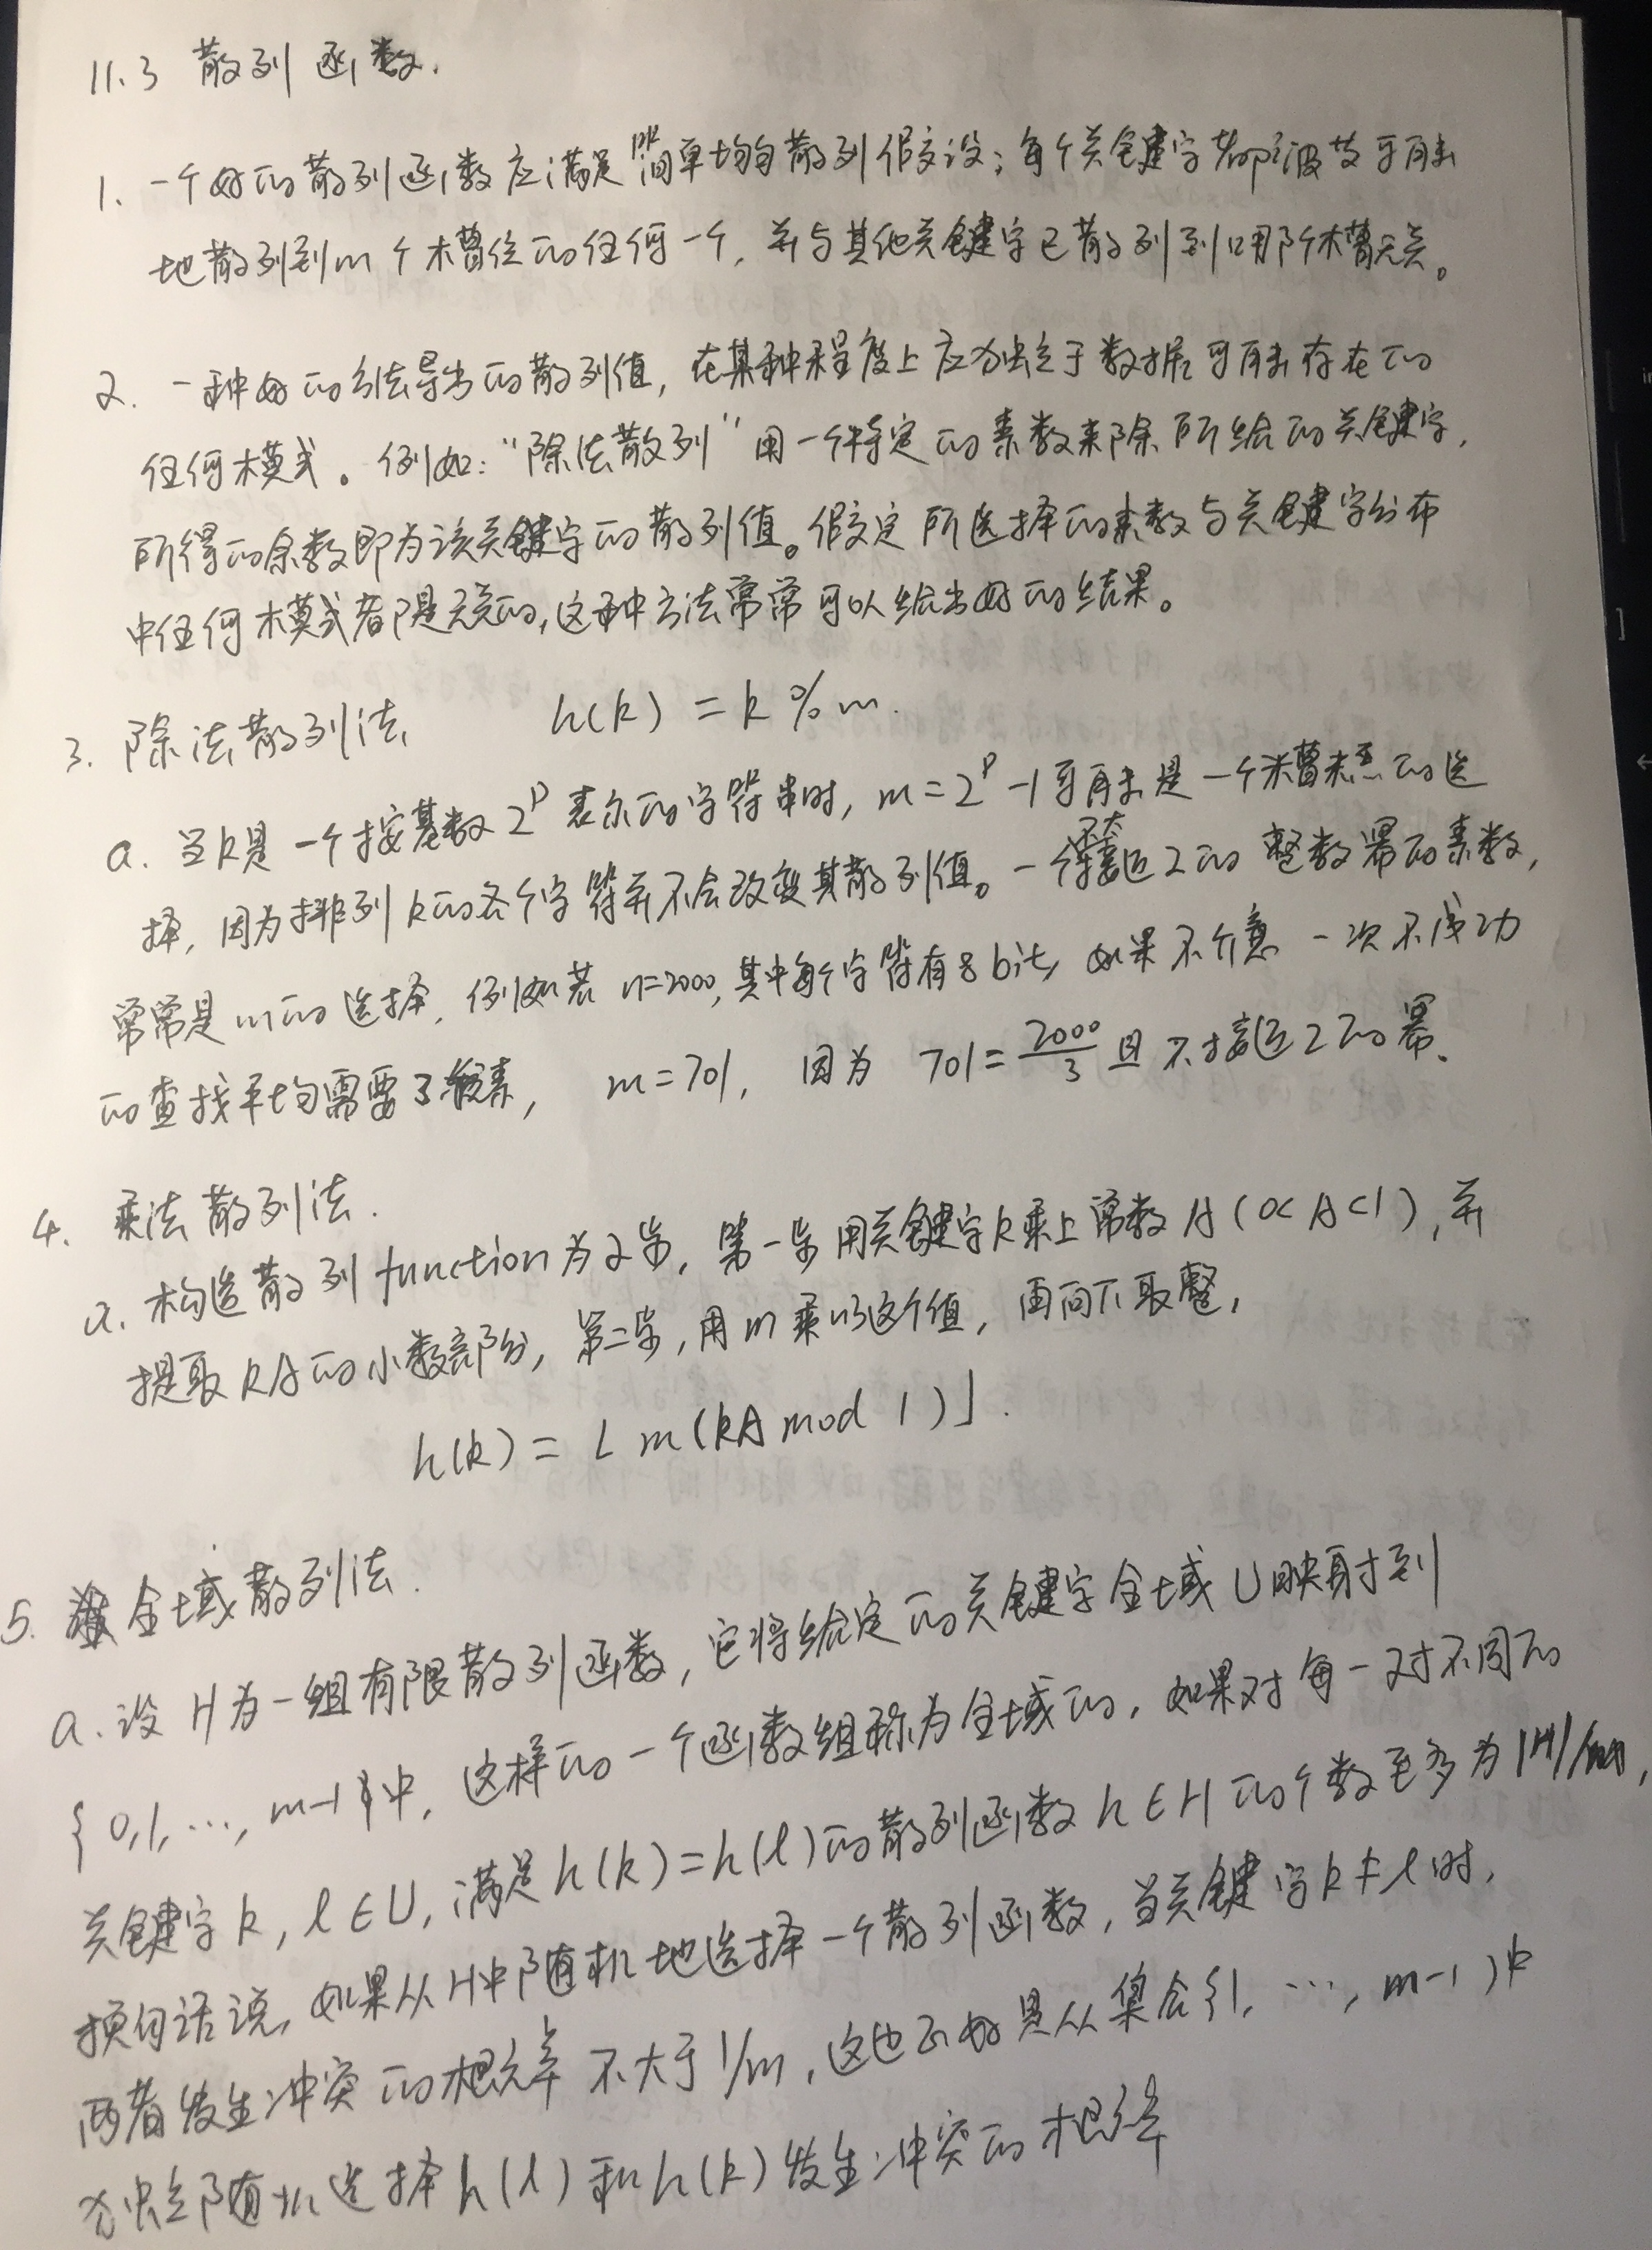 11.3 散列函数.
1. 一个好的散列函数应满足简单均匀散列假设；每个关键字都被等可能
地散列到m个槽位的任何一个，并与其他关键字已散列到哪个槽无关。
2. 一种好的方法导出的散列值，在某种程度上应独立于数据可能存在的
任何模式。例如："除法散列"用一个特定的素数来除所给的关键字，
所得的余数即为该关键字的散列值。假定所选择的素数与关键字分布
中任何模式都是无关的，这种方法常常可以给出好的结果。
3. 除法散列法 h(k) = k % m.
a. 当k是一个按基数 2^p 表示的字符串时，m = 2^p - 1 可能是一个糟糕的选
择，因为排列k的各个字符并不会改变其散列值。一个不太接近2的整数幂的素数，
常常是m的选择，例如若 n=2000, 其中每个字符有8bit, 如果不介意一次不成功
的查找平均需要3个元素， m = 701， 因为 701 = 2000/3 且不接近2的幂.
4. 乘法散列法.
a. 构造散列function为2步，第一步用关键字k乘上常数A(0<A<1)，并
提取kA的小数部分，第二步，用m乘以这个值，再向下取整，
h(k) = ⌊m(kA mod 1)⌋.
5. 全域散列法.
a. 设H为一组有限散列函数，它将给定的关键字全域U映射到
{0,1,…, m-1}中，这样的一个函数组称为全域的，如果对每一对不同的
关键字k, l∈U, 满足h(k)=h(l)的散列函数h∈H的个数至多为|H|/m,
换句话说，如果从H中随机地选择一个散列函数，当关键字k≠l时，
两者发生冲突的概率不大于1/m，这也正好是从集合{1, …, m-1}中
独立随机选择h(l)和h(k)发生冲突的概率